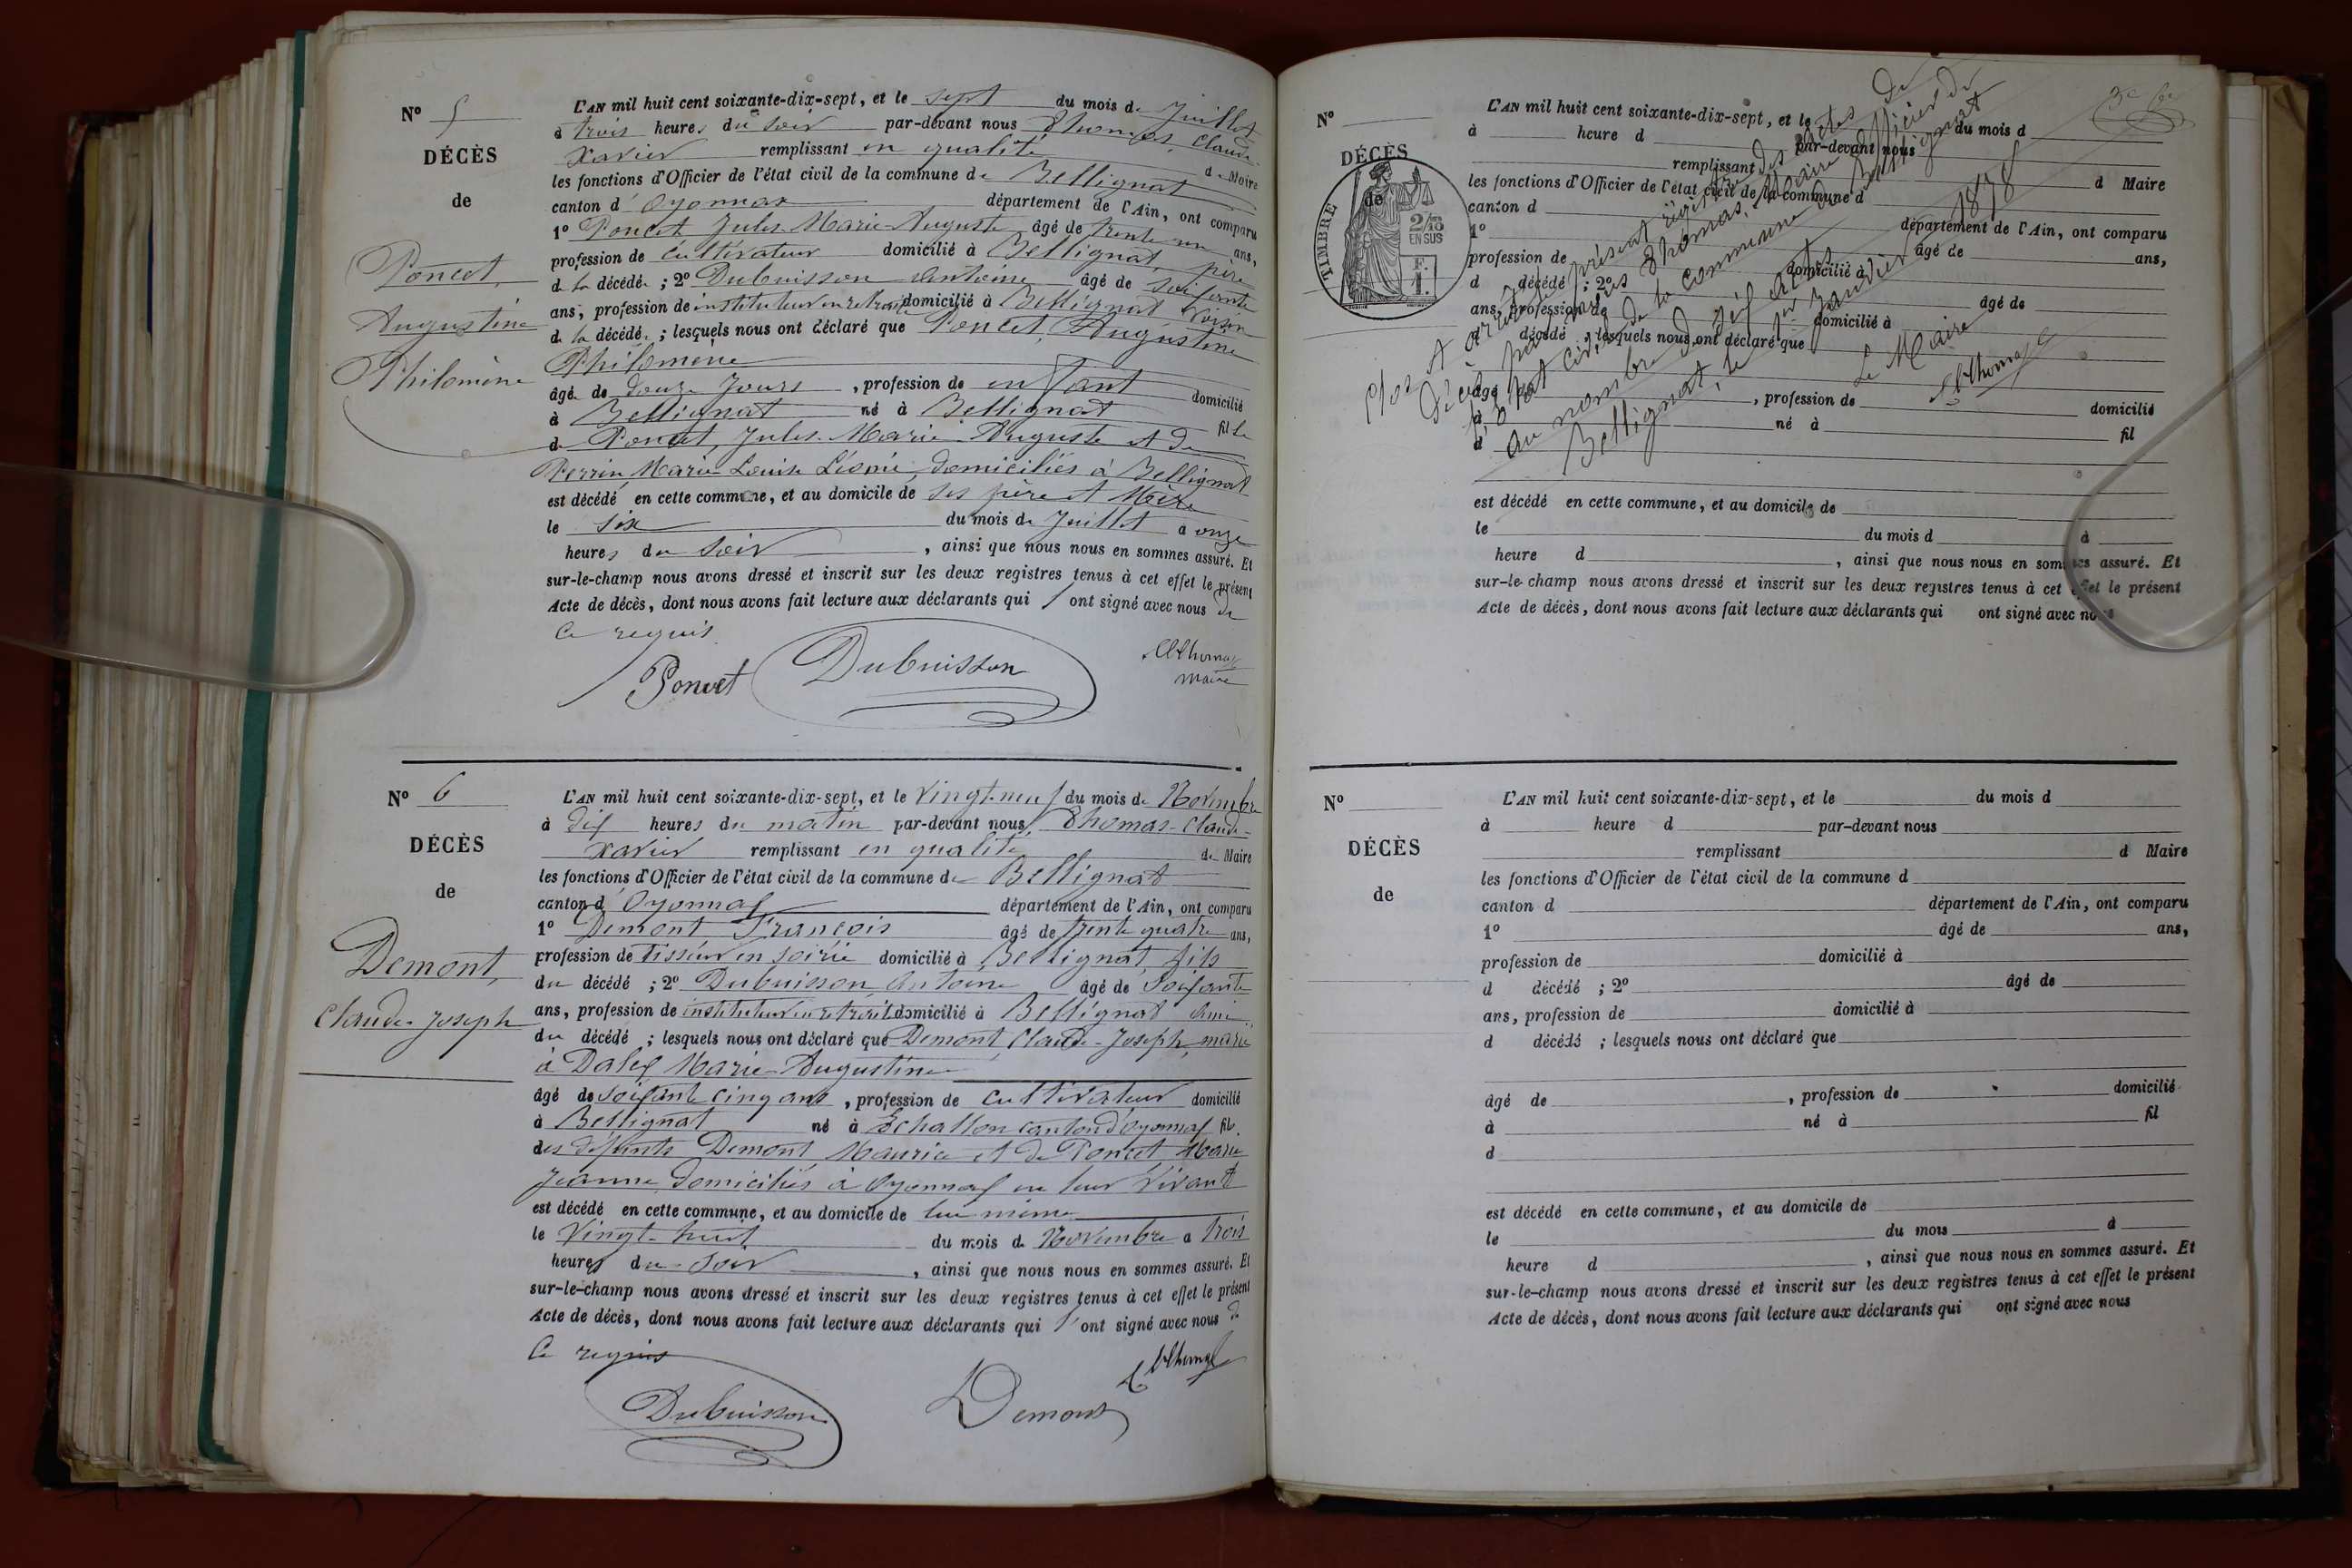 Nº 5
DÉCÈS
de
Poncet,
Augustine
Philomène
L'AN mil huit cent soixante-dix-sept, et le sept du mois de Juillet
à trois heures du soir par-devant nous Thomas, Claude-
Xavier remplissant en qualité de Maire
les fonctions d'Officier de l'état civil de la commune de Bellignat
canton d'Oyonnax département de l'Ain, ont comparu
1º Poncet Jules Marie Auguste âgé de trente-un ans,
profession de cultivateur domicilié à Bellignat, père
de la décédée ; 2º Dubuisson Antoine âgé de soixante
ans, profession de instituteur en retraite domicilié à Bellignat voisin
de la décédée ; lesquels nous ont déclaré que Poncet, Augustine
Philomène
âgé de douze jours, profession de enfant domicilié
à Bellignat né à Bellignat fille
de Poncet, Jules-Marie-Auguste et de
Perrin Marie Louise Léonie, domiciliés à Bellignat
est décédé en cette commune, et au domicile de ses père et Mère
le six du mois de Juillet à onze
heures du soir, ainsi que nous nous en sommes assuré. Et
sur-le-champ nous avons dressé et inscrit sur les deux registres tenus à cet effet le présent
Acte de décès, dont nous avons fait lecture aux déclarants qui ont signé avec nous de
ce requis
Poncet Dubuisson Clthomas
maire
Nº 6
DÉCÈS
de
Demont,
Claude-Joseph
L'AN mil huit cent soixante-dix-sept, et le vingt-neuf du mois de Novembre
à dix heures du matin par-devant nous Thomas-Claude-
Xavier remplissant en qualité de Maire
les fonctions d'Officier de l'état civil de la commune de Bellignat
canton d'Oyonnax département de l'Ain, ont comparu
1º Demont François âgé de trente quatre ans,
profession de Tisseur en soierie domicilié à Bellignat, fils
du décédé ; 2º Dubuisson Antoine âgé de soixante
ans, profession de instituteur en retraite domicilié à Bellignat ami
du décédé ; lesquels nous ont déclaré que Demont, Claude-Joseph, marié
à Dalex Marie-Augustine
âgé de soixante cinq ans, profession de cultivateur domicilié
à Bellignat né à Echallon canton d'Oyonnax fils
des défunts Demont Maurice et de Poncet Marie
Jeanne, domiciliés à Oyonnax en leur vivant
est décédé en cette commune, et au domicile de lui même
le vingt-huit du mois de Novembre à trois
heures du soir, ainsi que nous nous en sommes assuré. Et
sur-le-champ nous avons dressé et inscrit sur les deux registres tenus à cet effet le présent
Acte de décès, dont nous avons fait lecture aux déclarants qui ont signé avec nous de
ce requis
Dubuisson Demont Clthomas
Nº
DÉCÈS
de
TIMBRE
2/10
EN SUS
F.
1.
L'AN mil huit cent soixante-dix-sept, et le du mois d
à heure d par-devant nous
remplissant d Maire
les fonctions d'Officier de l'état civil de la commune d
canton d département de l'Ain, ont comparu
1º âgé de ans,
profession de domicilié à
d décédé ; 2º âgé de
ans, profession de domicilié à
d décédé ; lesquels nous ont déclaré que
âgé de, profession de domicilié
à né à fil
d
est décédé en cette commune, et au domicile de
le du mois d à
heure d, ainsi que nous nous en sommes assuré. Et
sur-le-champ nous avons dressé et inscrit sur les deux registres tenus à cet effet le présent
Acte de décès, dont nous avons fait lecture aux déclarants qui ont signé avec nous
Clos et arrêté le présent registre des actes de
décès par nous Thomas, Maire officier de
l'état civil de la commune de Bellignat
au nombre de six actes
Bellignat, le 1er Janvier 1878
Le Maire
Clthomas
Nº
DÉCÈS
de
L'AN mil huit cent soixante-dix-sept, et le du mois d
à heure d par-devant nous
remplissant d Maire
les fonctions d'Officier de l'état civil de la commune d
canton d département de l'Ain, ont comparu
1º âgé de ans,
profession de domicilié à
d décédé ; 2º âgé de
ans, profession de domicilié à
d décédé ; lesquels nous ont déclaré que
âgé de, profession de domicilié
à né à fil
d
est décédé en cette commune, et au domicile de
le du mois à
heure d, ainsi que nous nous en sommes assuré. Et
sur-le-champ nous avons dressé et inscrit sur les deux registres tenus à cet effet le présent
Acte de décès, dont nous avons fait lecture aux déclarants qui ont signé avec nous